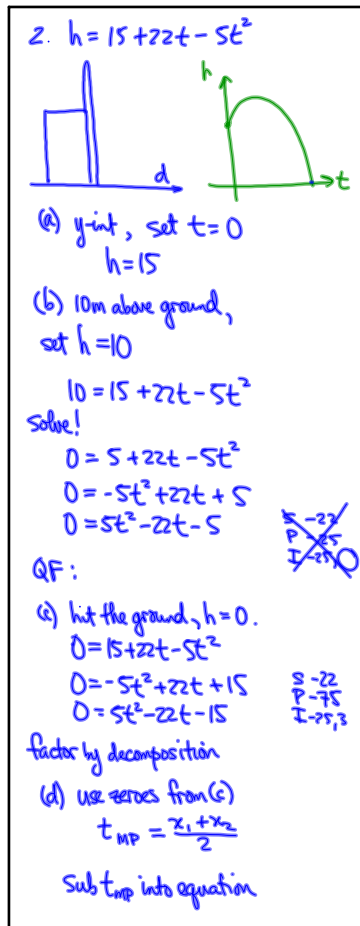 2. h = 15 + 22t - 5t²
h
d
t
(a) y-int, set t = 0
h = 15
(b) 10m above ground,
set h = 10
10 = 15 + 22t - 5t²
solve!
0 = 5 + 22t - 5t²
0 = -5t² + 22t + 5
0 = 5t² - 22t - 5
S -22
P -25
I -25,
QF:
(c) hit the ground, h = 0.
0 = 15 + 22t - 5t²
0 = -5t² + 22t + 15
0 = 5t² - 22t - 15
S -22
P -75
I -25, 3
factor by decomposition
(d) use zeroes from (c)
t_MP = (x₁ + x₂)/2
sub t_MP into equation